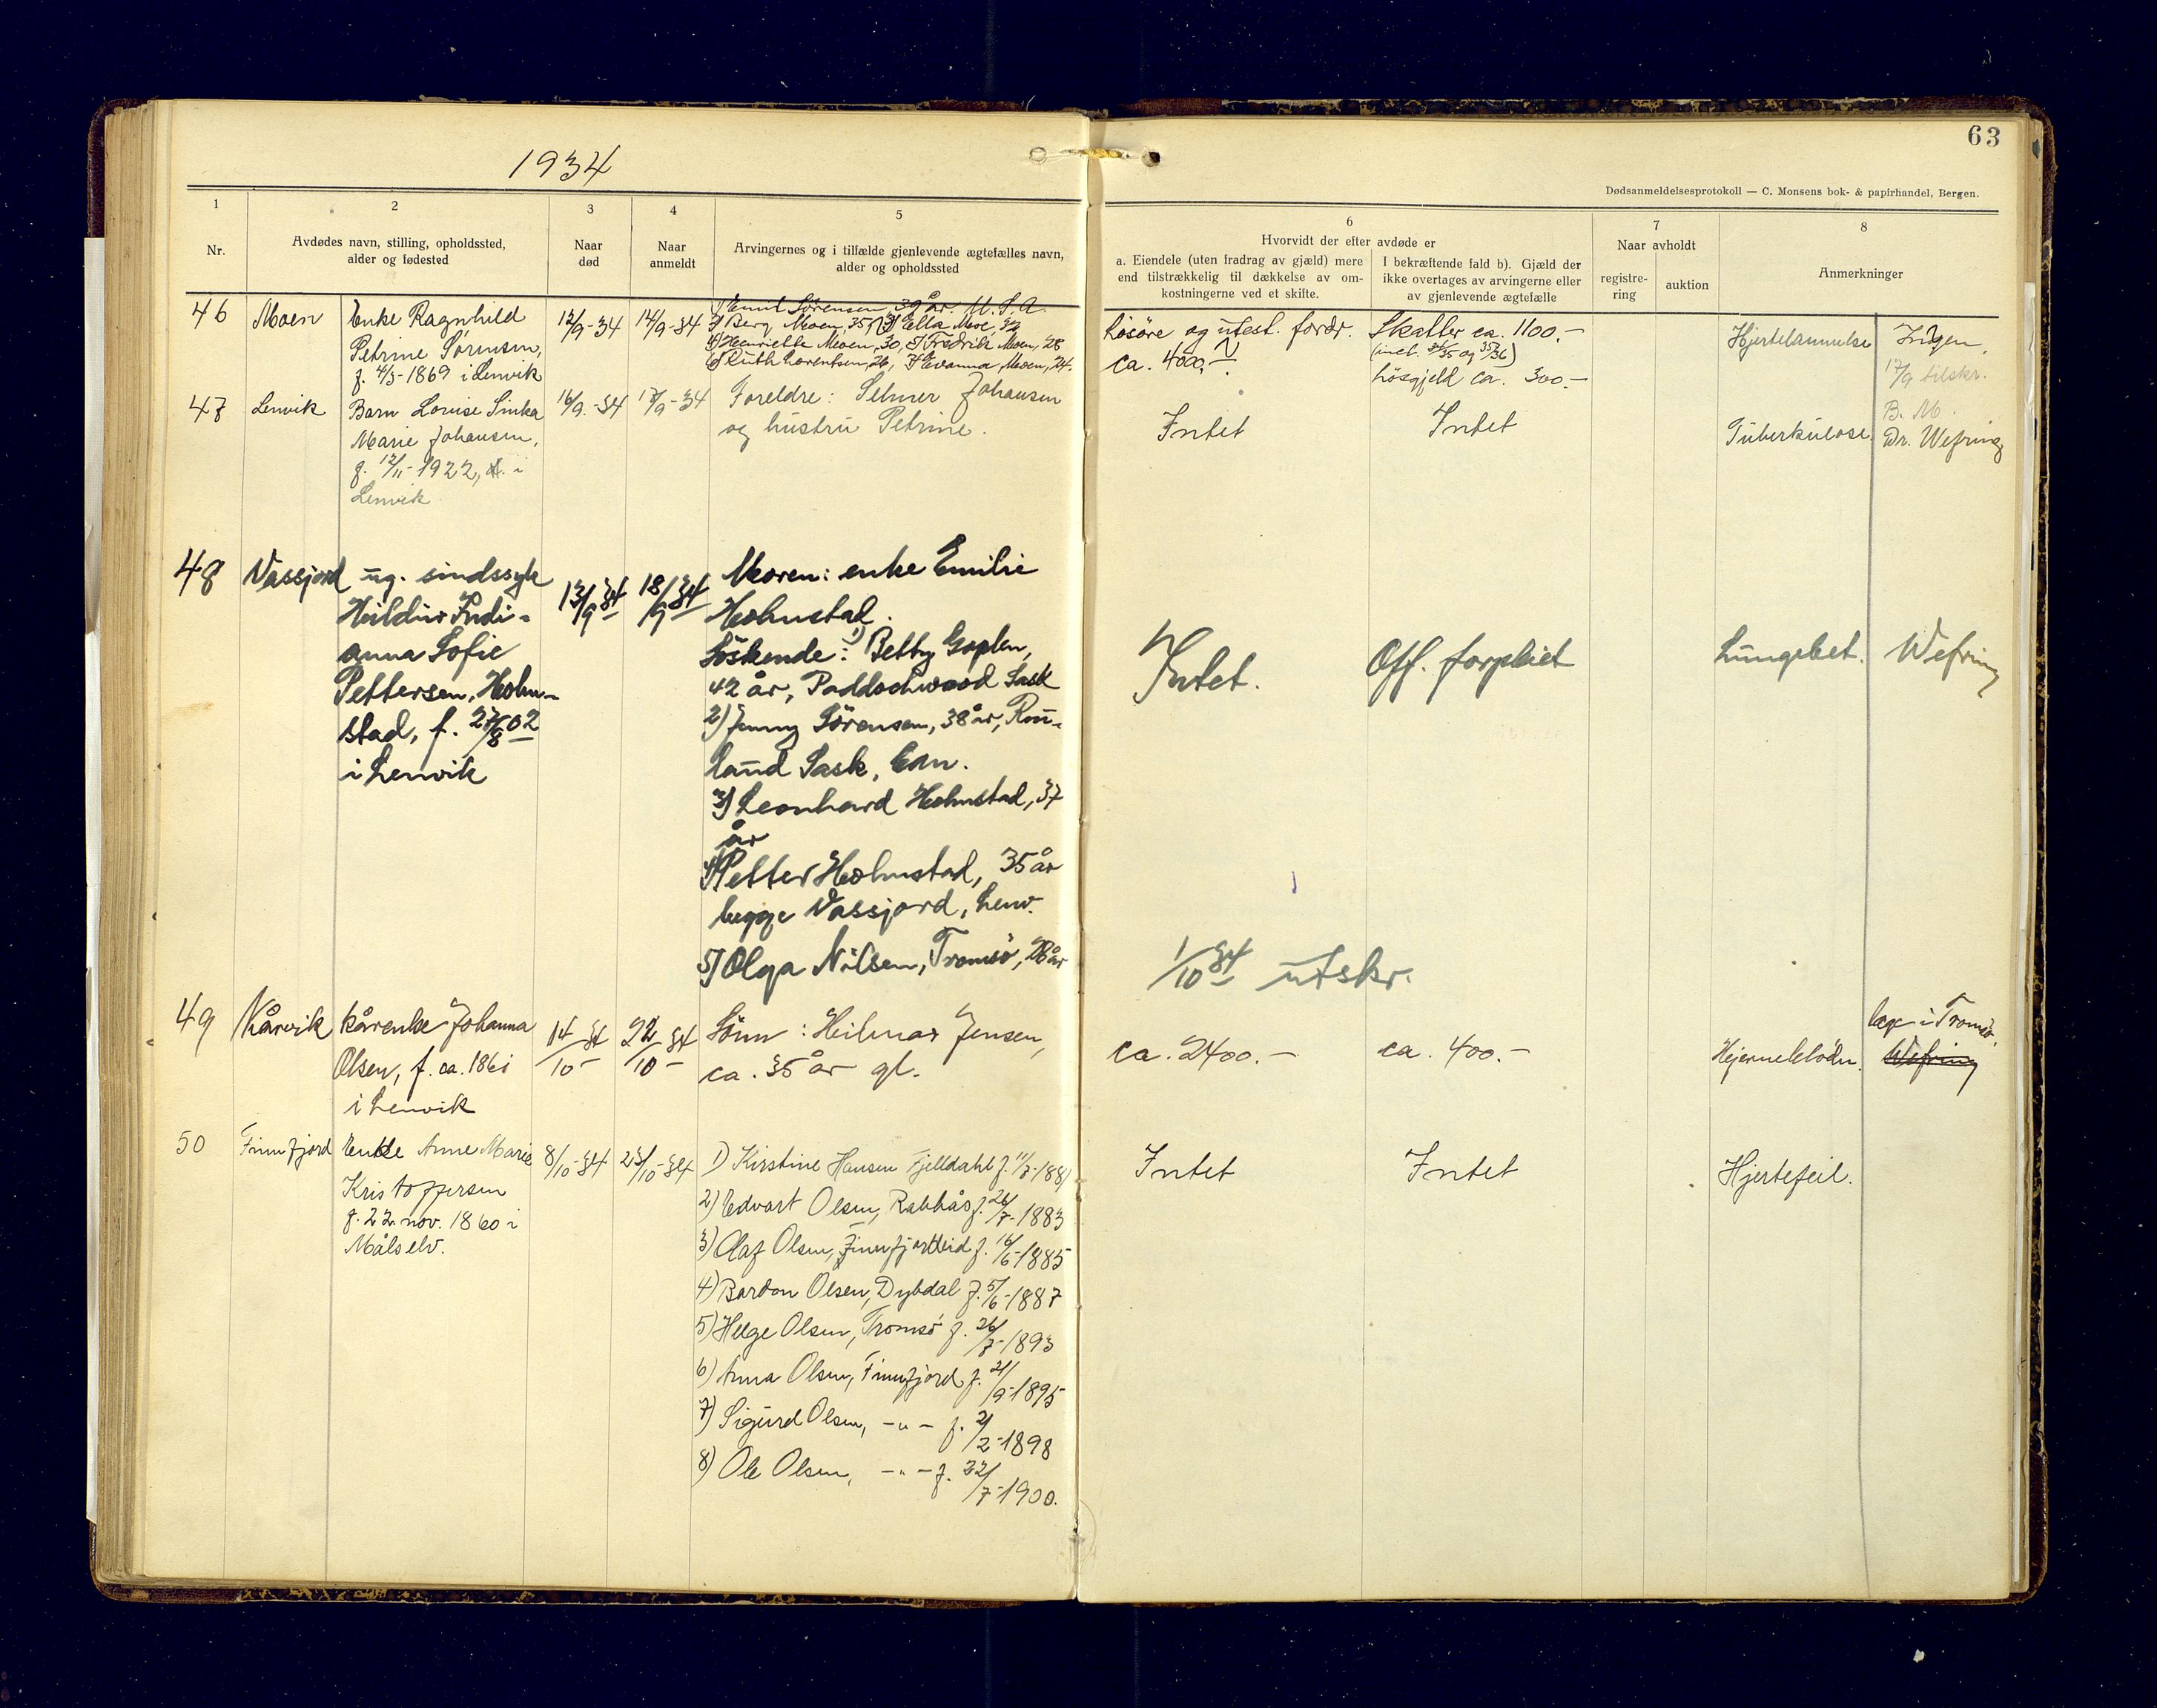 1934
63
Dødsanmeldelsesprotokoll — C. Monsens bok- & papirhandel, Bergen.
1
Nr.
2
Avdødes navn, stilling, opholdssted,
alder og fødested
3
Naar
død
4
Naar
anmeldt
5
Arvingernes og i tilfælde gjenlevende ægtefælles navn,
alder og opholdssted
6
Hvorvidt der efter avdøde er
a. Eiendele (uten fradrag av gjæld) mere
end tilstrækkelig til dækkelse av om-
kostningerne ved et skifte.
I bekræftende fald b). Gjæld der
ikke overtages av arvingerne eller
av gjenlevende ægtefælle
7
Naar avholdt
registre-
ring
auktion
8
Anmerkninger
46
Moen
Enke Ragnhild
Petrine Sørensen,
f. 4/3-1869 i Lenvik
12/9-34
14/9-34
1) Emil Sörensen, 39 år. U. S. A.
2) Berg Moen, 35, 3) Ella Moe, 32
4) Henriette Moen, 30, 5) Fredrik Moen, 28
6) Ruth Lorentsen, 26, 7) Evanna Moen, 24.
Løsøre og utest. fordr.
ca. 4000,-
Skatter ca. 1100.-
(incl. 34/35 og 35/36)
Løsgjeld ca. 300.-
Hjertelammelse
Ingen.
17/9 tilskr.
B. M.
47
Lenvik
Barn Lovise Sinka
Marie Johansen,
f. 12/11-1922, i
Lenvik
16/9.-34
17/9-34
Foreldre: Selmer Johansen
og hustru Petrine.
Intet
Intet
Tuberkulose.
Dr. Wefring
48
Vassjord
ug. sindssyk
Hildur Indi-
anna Sofie
Pettersen, Holm-
stad, f. 27/8 02
i Lenvik
13/9 34
18/9 34
Moren: enke Emilie
Holmstad.
Söskende: 1) Betty Goplen,
42 år, Paddochwood Sask
2) Jenny Sörensen, 38 år, Rou-
land Sask, Can.
3) Leonhard Holmstad, 37
år
4) Petter Holmstad, 35 år
begge Vassjord, Lenv.
5) Olga Nilsen, Tromsö, 28 år
Intet.
Off. forpleiet
Lungebet.
Wefring
1/10 34 utskr.
49
Kårvik
kårenke Johanna
Olsen, f. ca. 1861
i Lenvik
14/10 34
22/10 34
Sönn: Hilmar Jensen,
ca. 35 år gl.
ca. 2400.-
ca. 400.-
Hjerneblödn.
læge i Tromsö.
Wefring
50
Finnfjord
Enke Anne Marie
Kristoffersen
f. 22 nov. 1860 i
Målselv.
8/10-34
23/10-34
1) Kirstine Hansen Fjelldahl f. 11/7-1881
2) Edvart Olsen, Rabbås f. 26/7-1883
3) Olaf Olsen, Finnfjordeid f. 16/6-1885
4) Bardon Olsen, Dybdal f. 5/6-1887
5) Helge Olsen, Tromsö f. 26/7-1893
6) Anna Olsen, Finnfjord f. 21/9-1895
7) Sigurd Olsen, -"- f. 2/2-1898
8) Ole Olsen, -"- f. 22/7-1900.
Intet
Intet
Hjertefeil.